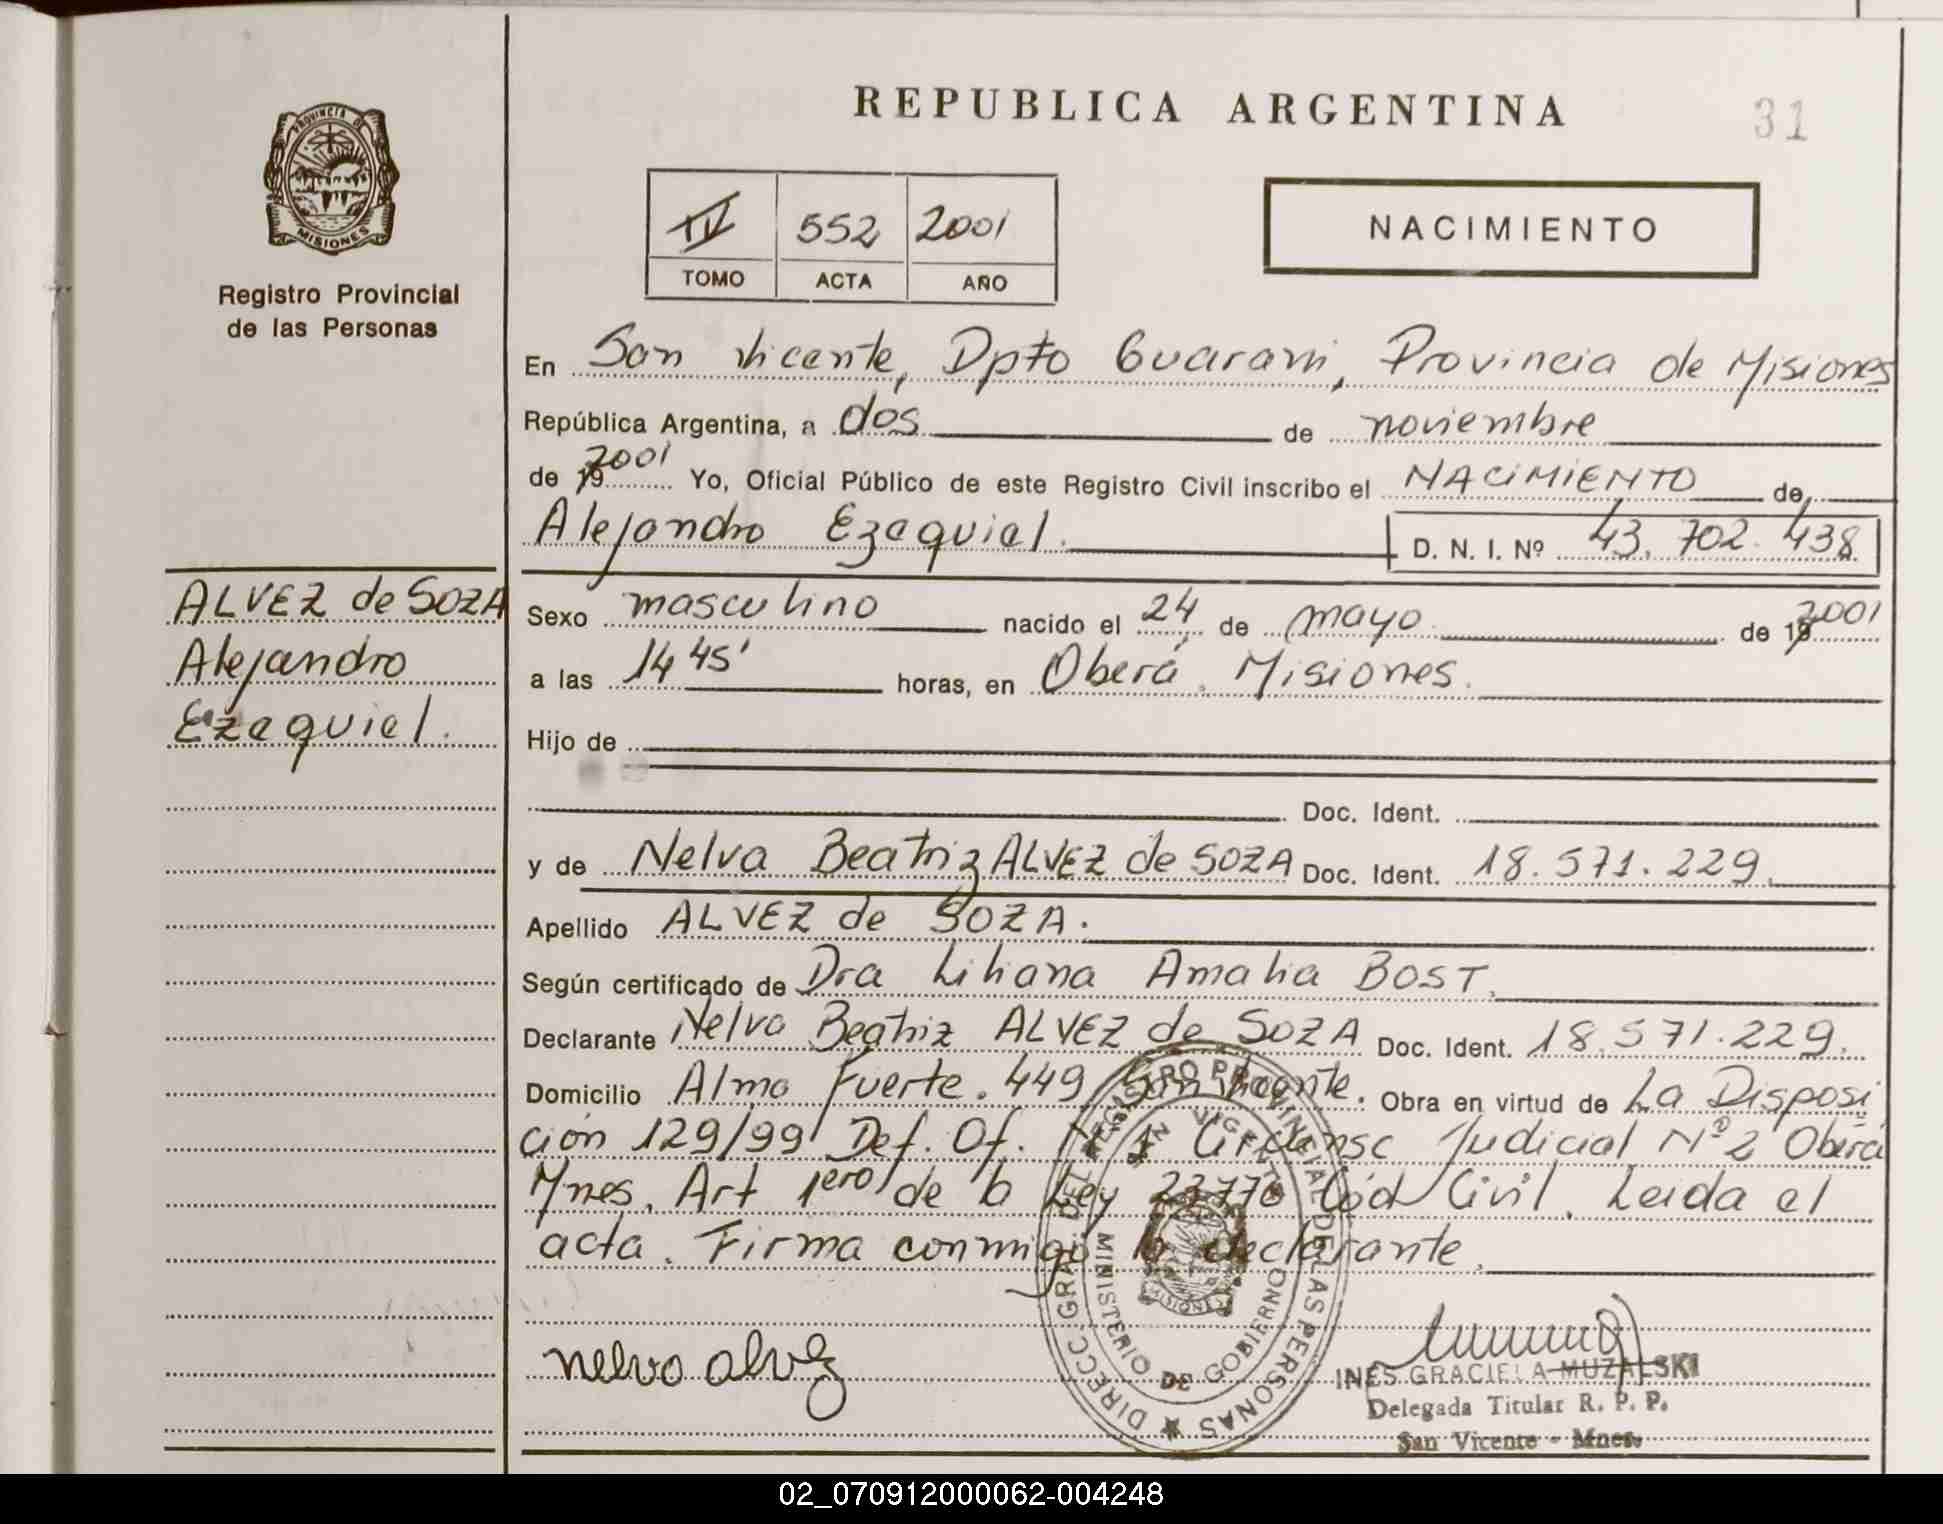 REPUBLICA ARGENTINA
31
PROVINCIA DE
MISIONES
Registro Provincial
de las Personas
IV 552 2001
TOMO ACTA AÑO
NACIMIENTO
En San Vicente, Dpto Guarani, Provincia de Misiones
República Argentina, a dos de noviembre
de 19 2001 Yo, Oficial Público de este Registro Civil inscribo el NACIMIENTO de
Alejandro Ezequiel. D. N. I. Nº 43.702.438
ALVEZ de SOZA
Alejandro
Ezequiel.
Sexo masculino nacido el 24 de mayo de 19 2001
a las 14 45' horas, en Oberá. Misiones.
Hijo de
Doc. Ident.
y de Nelva Beatriz ALVEZ de SOZA Doc. Ident. 18.571.229.
Apellido ALVEZ de SOZA.
Según certificado de Dra Liliana Amalia BOST.
Declarante Nelva Beatriz ALVEZ de SOZA Doc. Ident. 18.571.229.
Domicilio Alma Fuerte. 449 San Vicente. Obra en virtud de La Disposi
ción 129/99 Def. Of. Nº 1 Judicial Nº 2 Oberá
Mnes. Art 1ero de la Ley Cód Civil. Leida el
acta. Firma conmigo la declarante.
nelva alvez
DIRECC. GRAL. DEL REGISTRO PROVINCIAL DE LAS PERSONAS
SAN VICENTE
MINISTERIO DE GOBIERNO
MISIONES
INES GRACIELA MUZALSKI
Delegada Titular R. P. P.
San Vicente - Mnes.
02_070912000062-004248